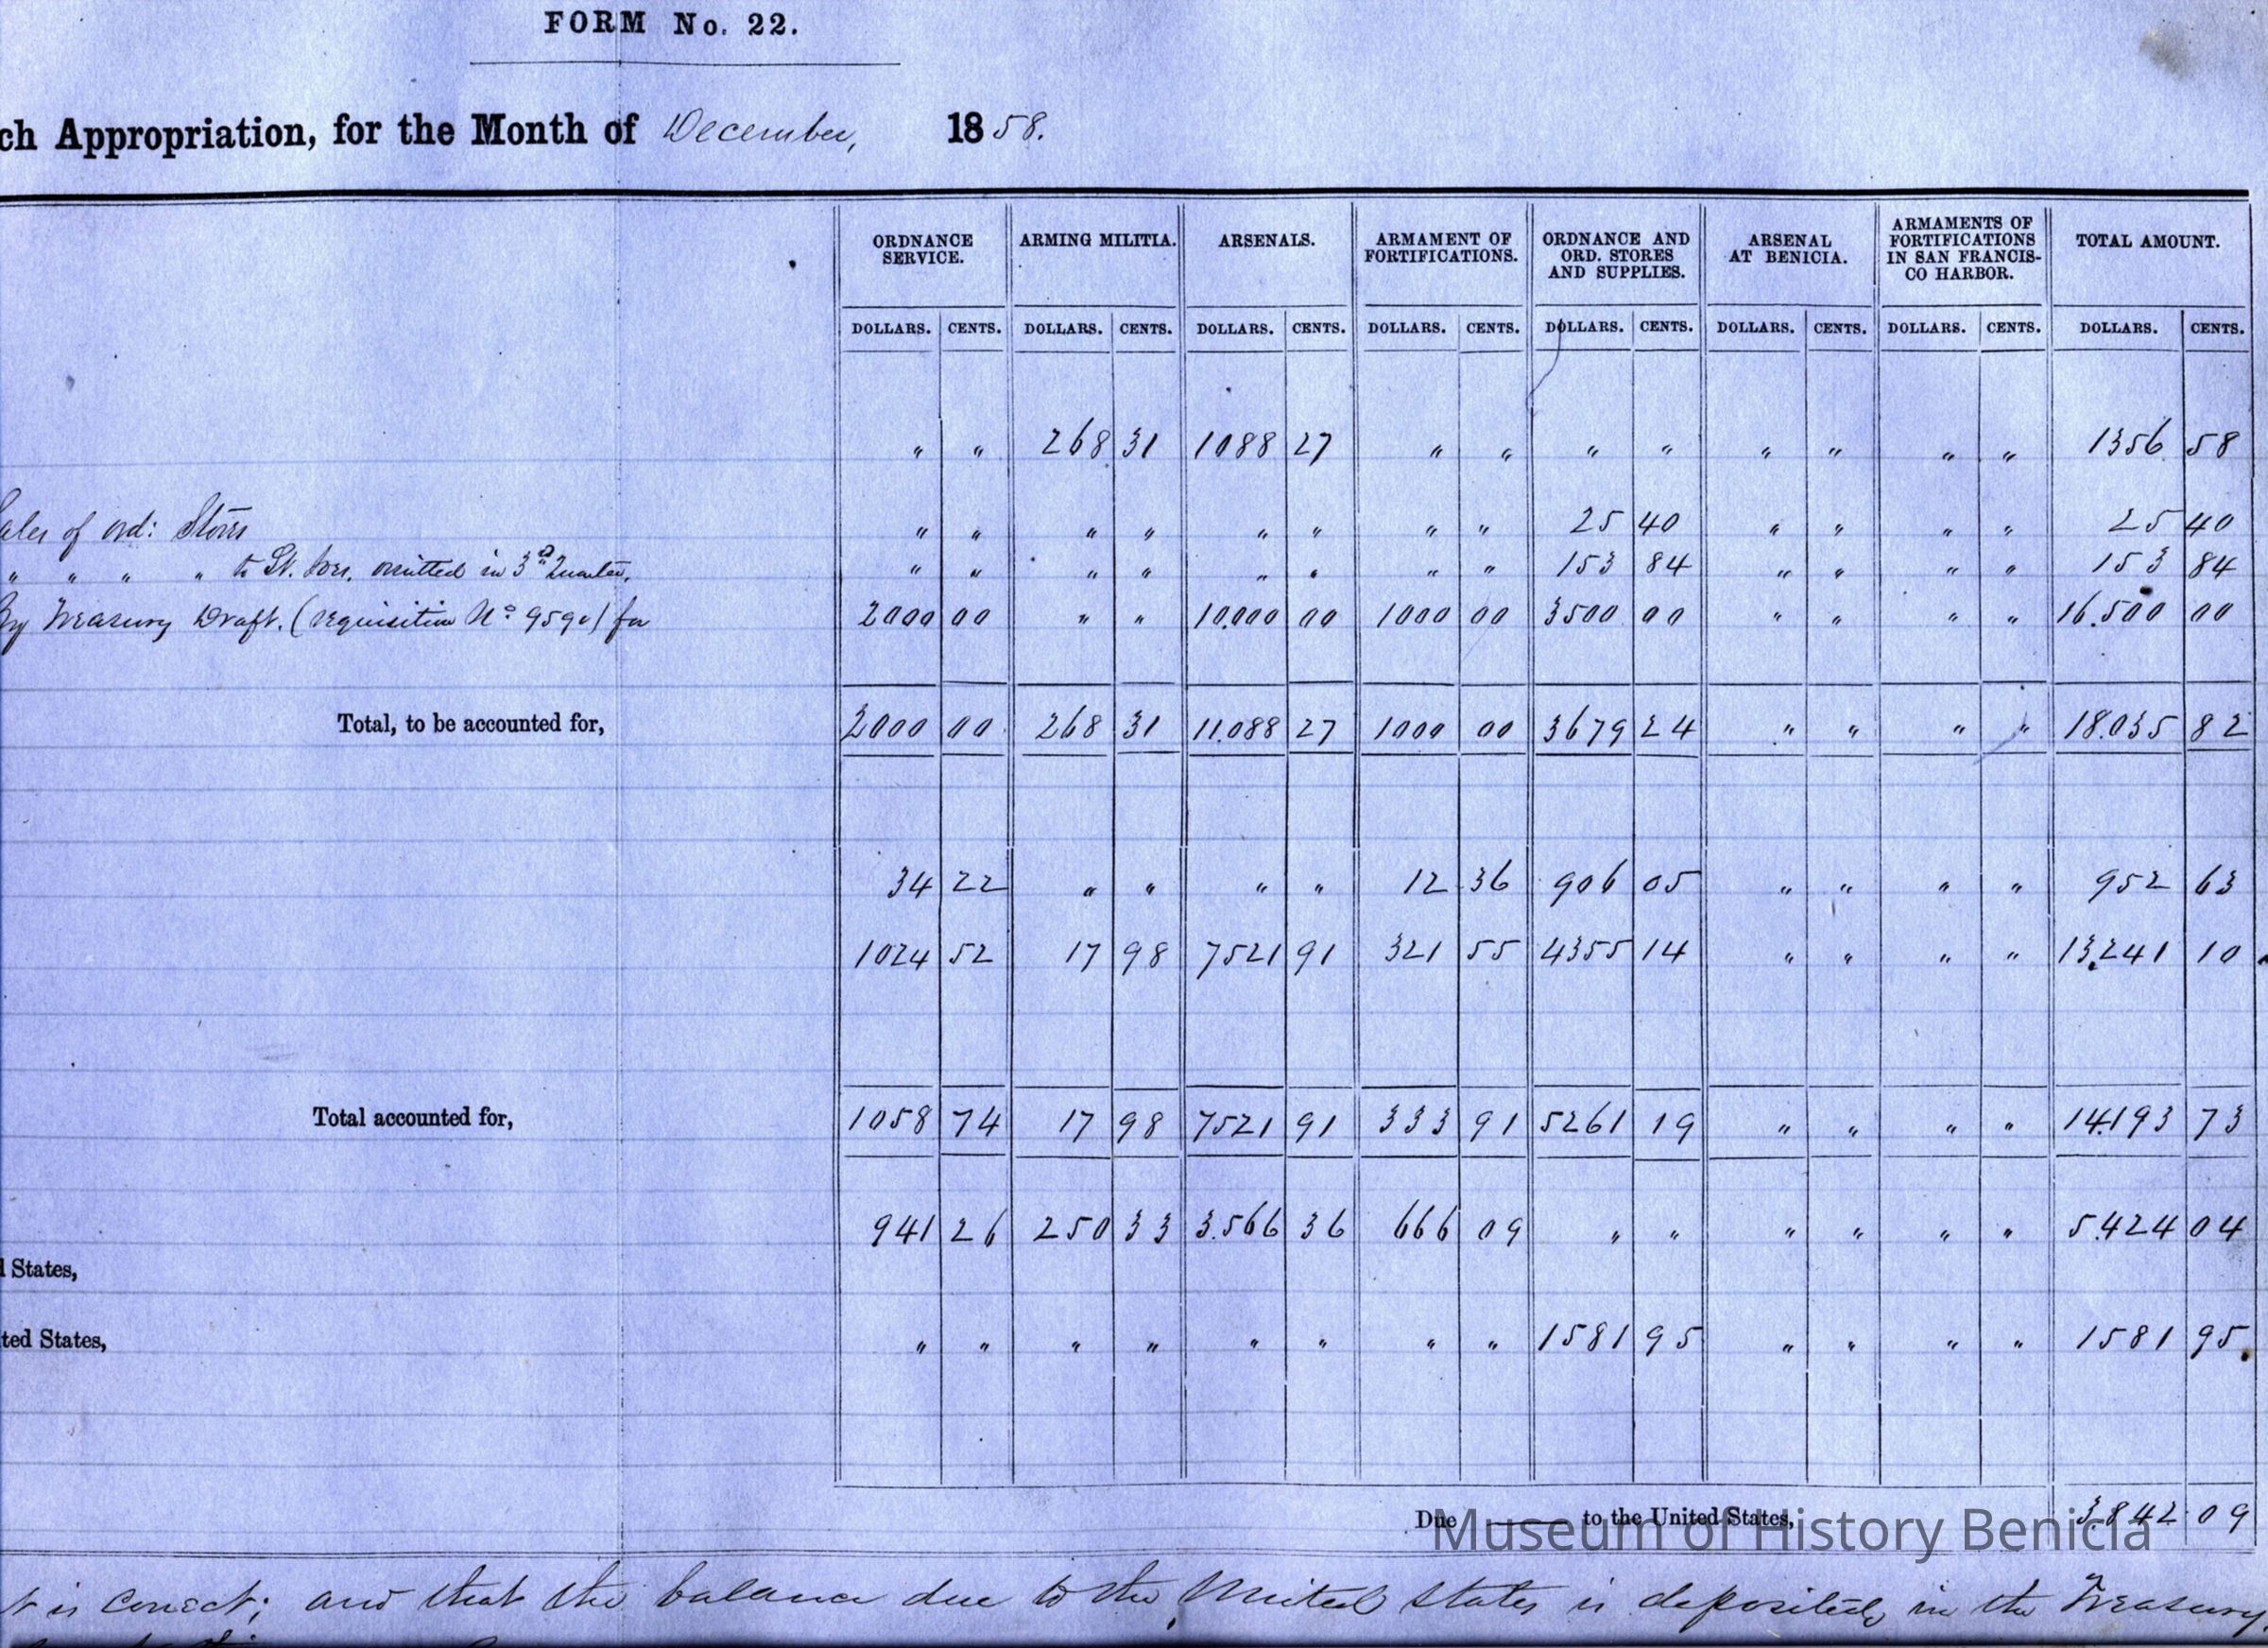 FORM No. 22.
ch Appropriation, for the Month of December, 1858.
ORDNANCE SERVICE. ARMING MILITIA. ARSENALS. ARMAMENT OF FORTIFICATIONS. ORDNANCE AND ORD. STORES AND SUPPLIES. ARSENAL AT BENICIA. ARMAMENTS OF FORTIFICATIONS IN SAN FRANCIS-CO HARBOR. TOTAL AMOUNT.
DOLLARS. CENTS. DOLLARS. CENTS. DOLLARS. CENTS. DOLLARS. CENTS. DOLLARS. CENTS. DOLLARS. CENTS. DOLLARS. CENTS. DOLLARS. CENTS.
" " 268 31 1088 27 " " " " " " " " 1356 58
ales of ord: Stores " " " " " " " " 25 40 " " " " 25 40
" " " " to St. omitted in 3d Quarter, " " " " " " " " 153 84 " " " " 153 84
By Treasury Draft. (requisition No 9590) for 2000 00 " " 10.000 00 1000 00 3500 00 " " " " 16.500 00
Total, to be accounted for, 2000 00 268 31 11.088 27 1000 00 3679 24 " " " " 18.035 82
34 22 " " " " 12 36 906 05 " " " " 952 63
1024 52 17 98 7521 91 321 55 4355 14 " " " " 13.241 10
Total accounted for, 1058 74 17 98 7521 91 333 91 5261 19 " " " " 14.193 73
941 26 250 33 3.566 36 666 09 " " " " " " 5.424 04
d States,
ted States, " " " " " " " " 1581 95 " " " " 1581 95
Due —— to the United States, 3.842 09
Museum of History Benicia
t is correct; and that the balance due to the United States is deposited in the Treasury